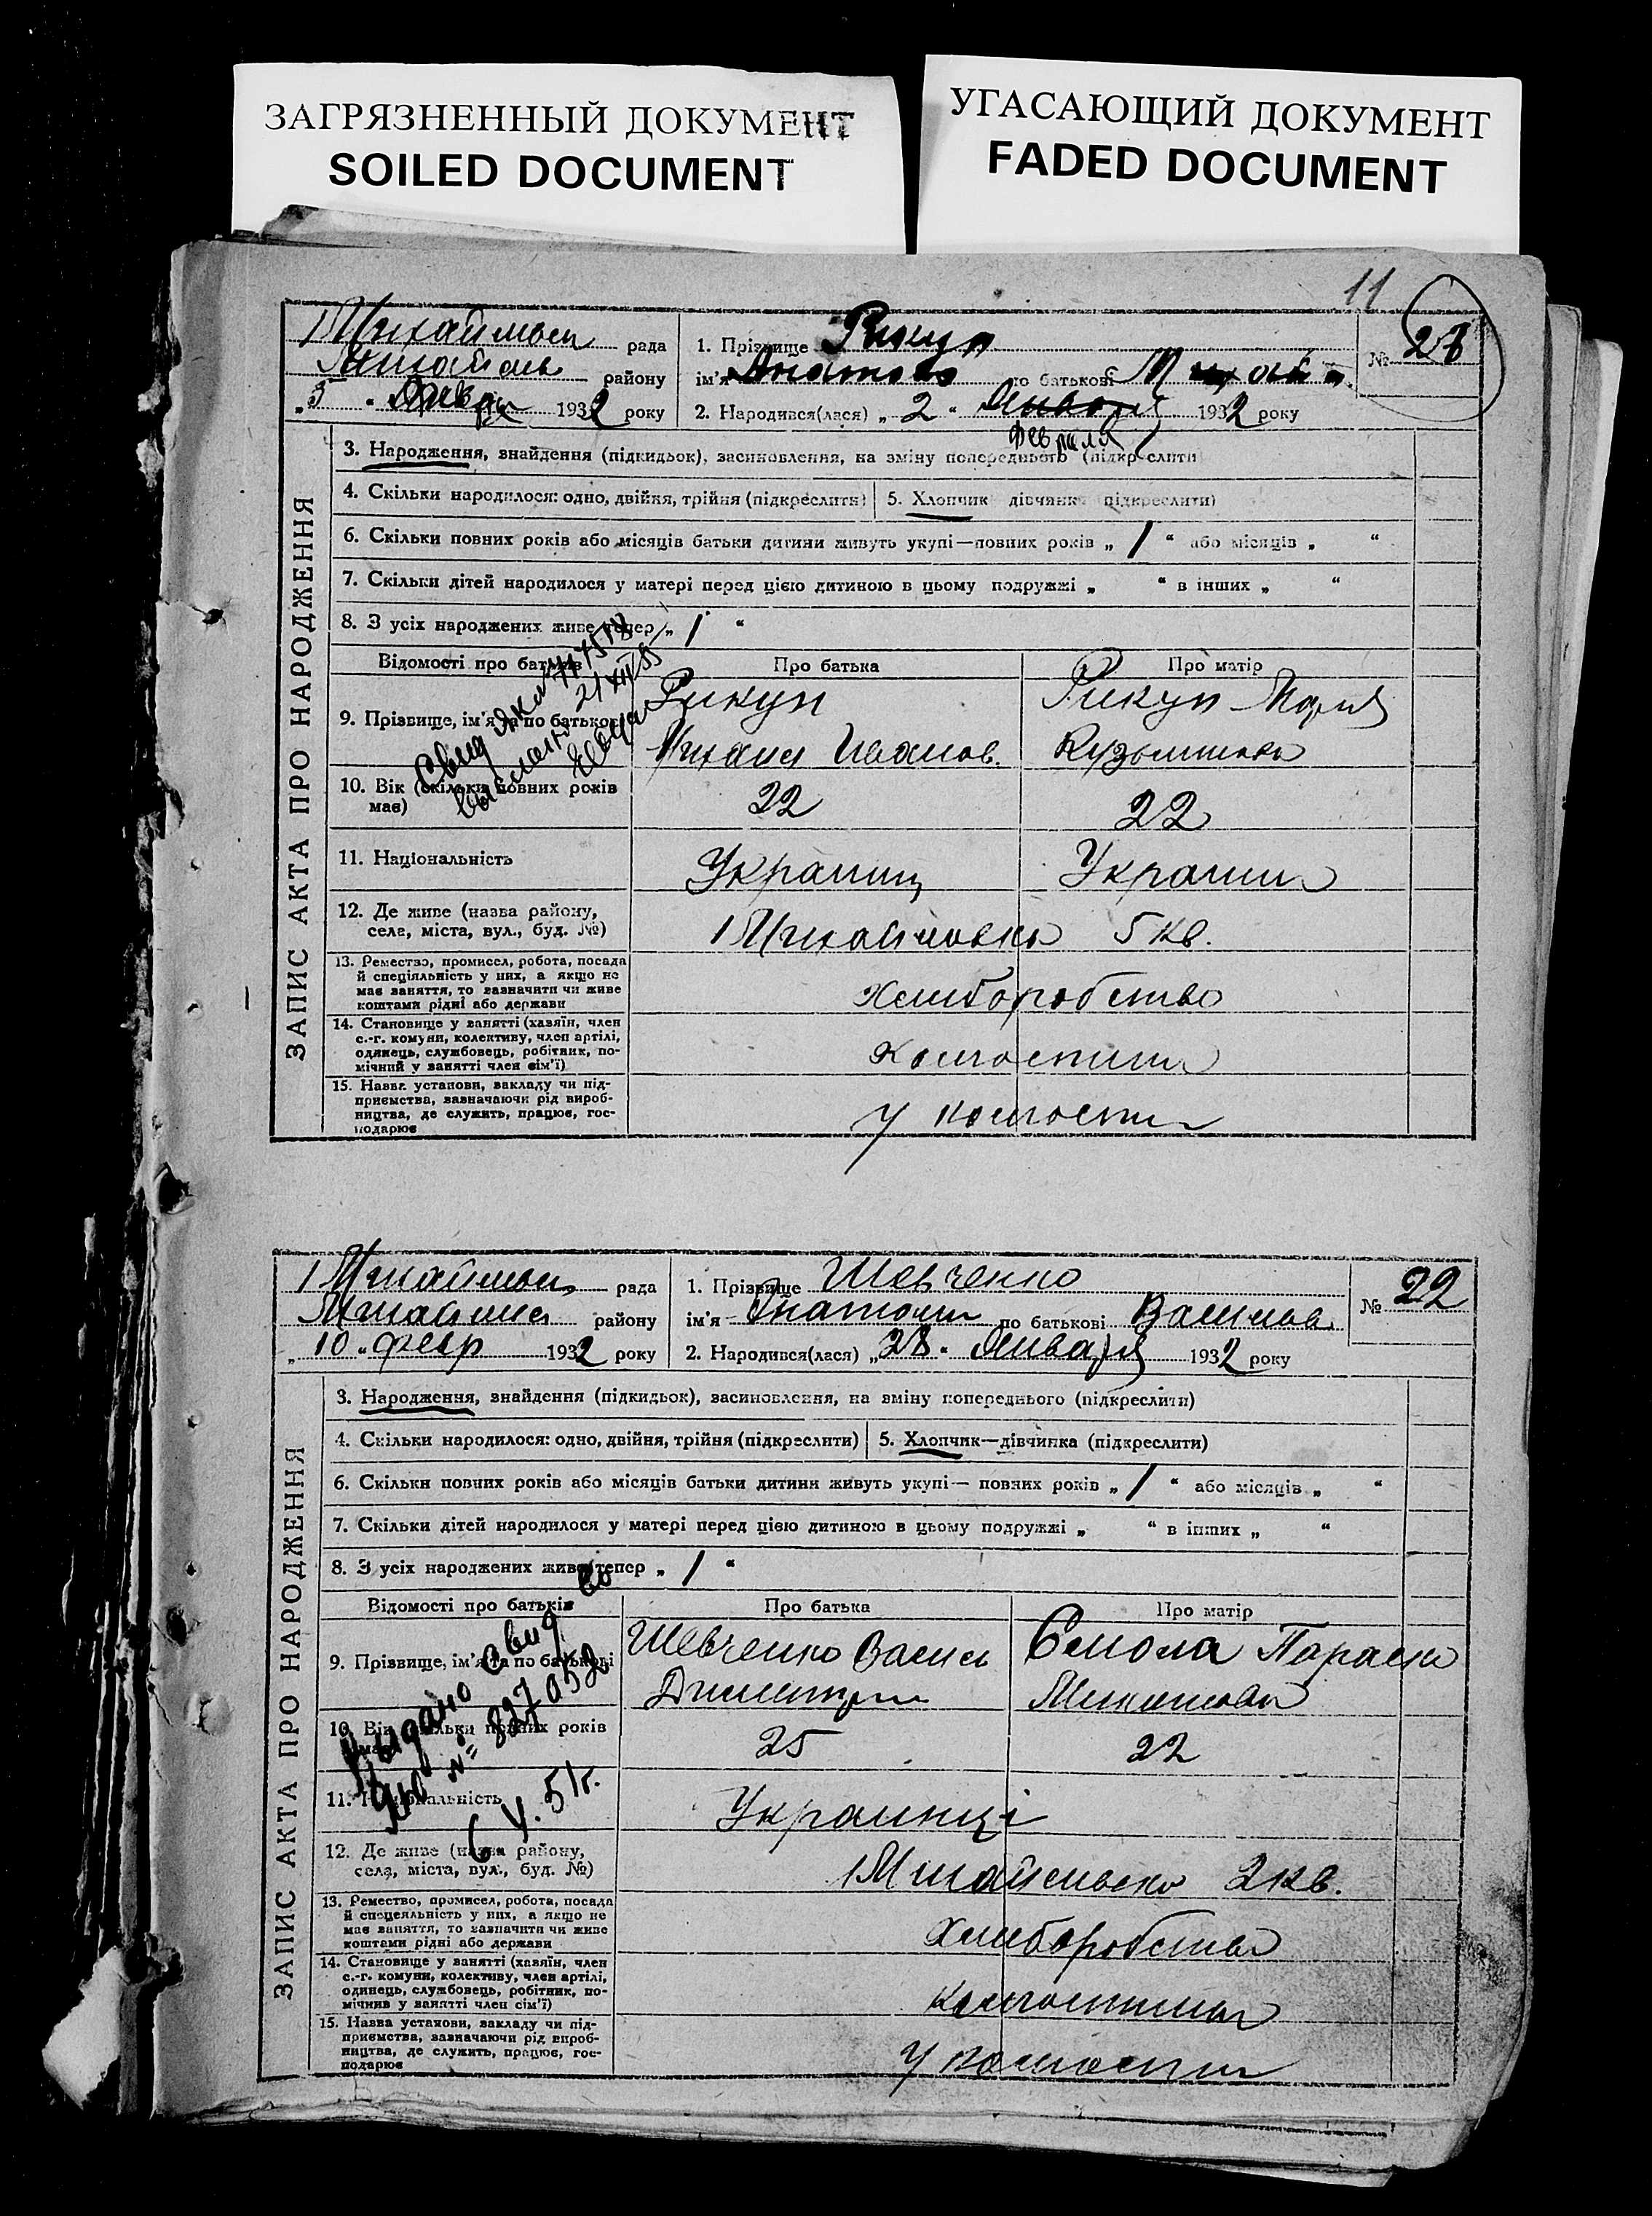 ЗАГРЯЗНЕННЫЙ ДОКУМЕНТ
SOILED DOCUMENT
УГАСАЮЩИЙ ДОКУМЕНТ
FADED DOCUMENT
11
рада
району
„5“ 1932 року
1. Прізвище Рикун
ім'я по батькові
2. Народився(лася) „2“ Января 1932 року
Февраля
№
ЗАПИС АКТА ПРО НАРОДЖЕННЯ
3. Народження, знайдення (підкидьок), засиновлення, на зміну попереднього (підкреслити)
4. Скільки народилося: одно, двійня, трійня (підкреслити)
5. Хлопчик дівчинка (підкреслити)
6. Скільки повних років або місяців батьки дитини живуть укупі—повних років „1“ або місяців „ “
7. Скільки дітей народилося у матері перед цією дитиною в цьому подружжі „ “ в інших „ “
8. З усіх народжених живе тепер „1“
Відомості про батьків
Про батька
Про матір
9. Прізвище, ім'я та по батькові
Рикун
Рикун Мария
Михаил Иванов.
10. Вік (скільки повних років
має)
22
22
11. Національність
Украинц
12. Де живе (назва району,
села, міста, вул., буд. №)
5 кв.
13. Ремество, промисел, робота, посада
й спеціяльність у них, а якщо не
має заняття, то зазначити чи живе
коштами рідні або держави
Хлиборобство
14. Становище у занятті (хазяїн, член
с.-г. комуни, колективу, член артілі,
одинець, службовець, робітник, по-
мічний у занятті член сім'ї)
15. Назва установи, закладу чи під-
приємства, зазначаючи рід вироб-
ництва, де служить, працює, гос-
подарює
у колгоспи
рада
району
„10“ февр 1932 року
1. Прізвище Шевченко
ім'я Анатолий по батькові Васильов.
2. Народився(лася) „28“ Января 1932 року
№ 22
ЗАПИС АКТА ПРО НАРОДЖЕННЯ
3. Народження, знайдення (підкидьок), засиновлення, на зміну попереднього (підкреслити)
4. Скільки народилося: одно, двійня, трійня (підкреслити)
5. Хлопчик—дівчинка (підкреслити)
6. Скільки повних років або місяців батьки дитини живуть укупі— повних років „1“ або місяців „ “
7. Скільки дітей народилося у матері перед цією дитиною в цьому подружжі „ “ в інших „ “
8. З усіх народжених живе тепер „1“
Відомості про батьків
Про батька
Про матір
9. Прізвище, ім'я та по батькові
Шевченко Васил
Параска
Выдано свид
№ 827052
6 V. 51г.
10. Вік (скільки повних років
має)
25
22
11. Національність
Украинці
12. Де живе (назва району,
села, міста, вул., буд. №)
2 кв.
13. Ремество, промисел, робота, посада
й спецеяльність у них, а якщо не
має заняття, то зазначити чи живе
коштами рідні або держави
Хлиборобства
14. Становище у занятті (хазяїн, член
с.-г. комуни, колективу, член артілі,
одинець, службовець, робітник, по-
мічник у занятті член сім'ї)
15. Назва установи, закладу чи під-
приємства, зазначаючи рід вироб-
ництва, де служить, працює, гос-
подарює
у колгоспи